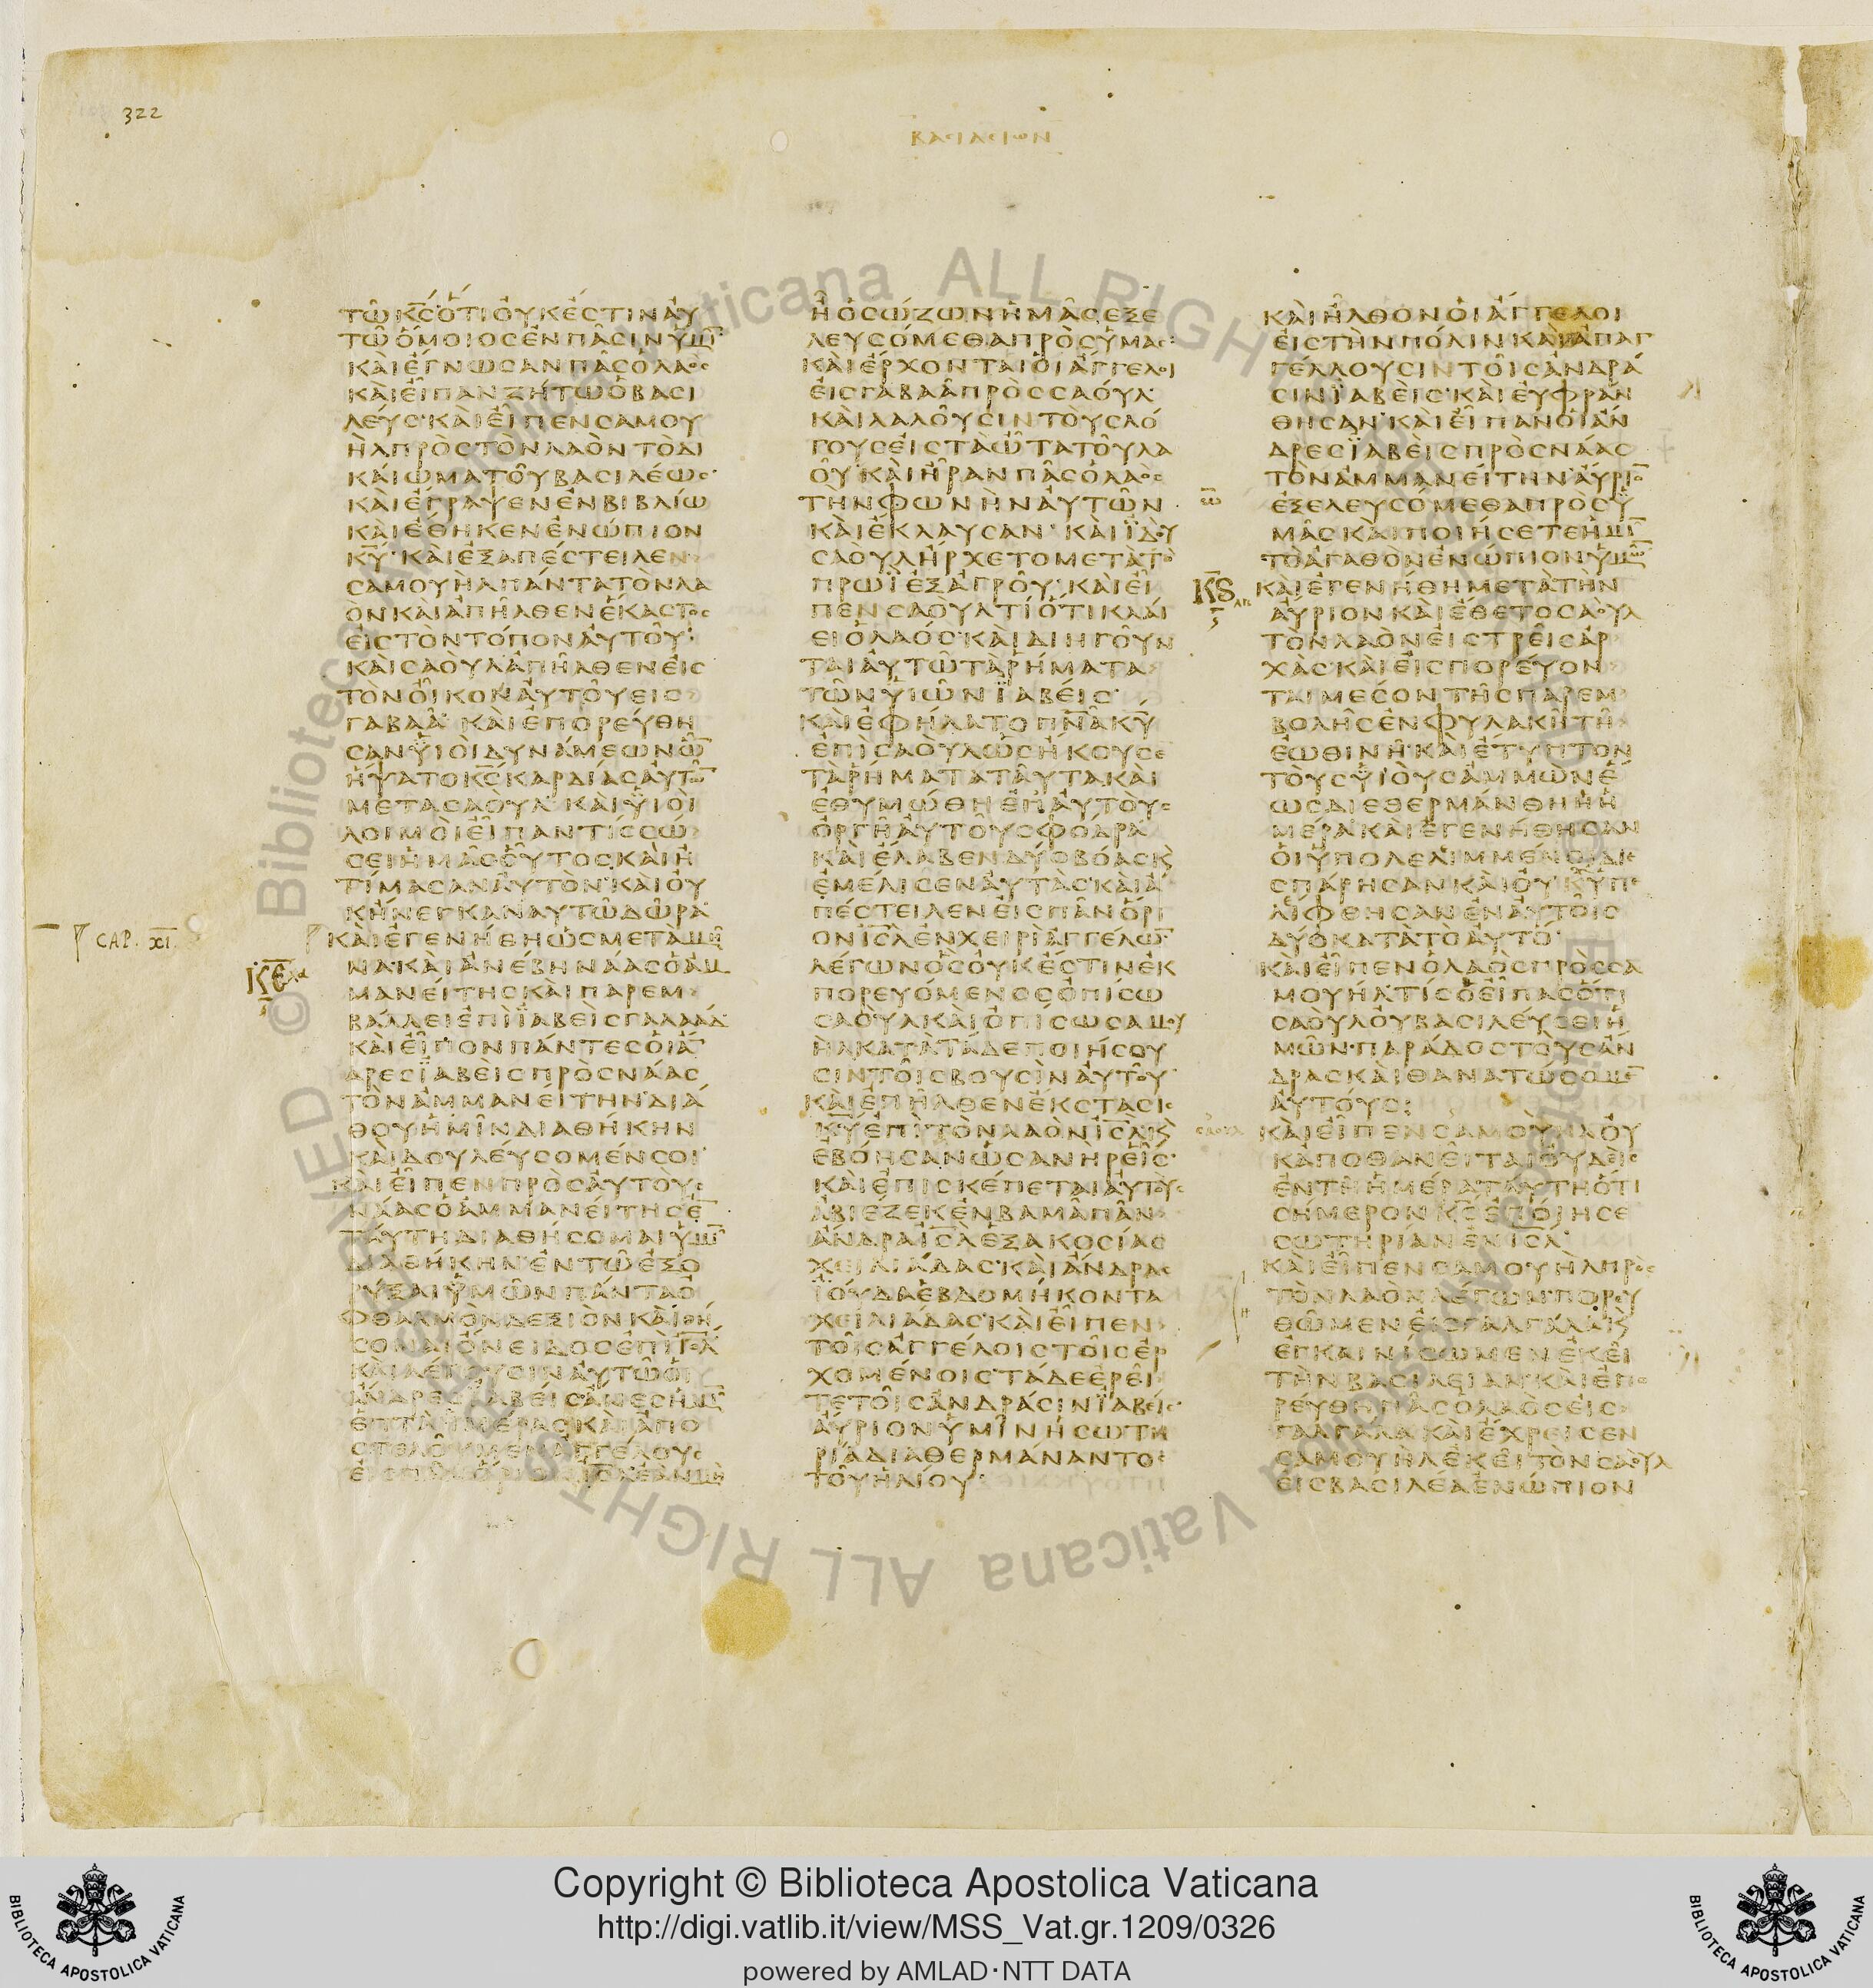 322
ΒΑΣΙΛΕΙΩΝ
ΤΩ ΚΣ ΟΤΙ ΟΥΚ ΕΣΤΙΝ ΑΥ
ΤΩ ΟΜΟΙΟΣ ΕΝ ΠΑΣΙΝ ΥΜΙ
ΚΑΙ ΕΓΝΩΣΑΝ ΠΑΣ Ο ΛΑΟΣ
ΚΑΙ ΕΙΠΑΝ ΖΗΤΩ Ο ΒΑΣΙ
ΛΕΥΣ· ΚΑΙ ΕΙΠΕΝ ΣΑΜΟΥ
ΗΛ ΠΡΟΣ ΤΟΝ ΛΑΟΝ ΤΟ ΔΙ
ΚΑΙΩΜΑ ΤΟΥ ΒΑΣΙΛΕΩΣ·
ΚΑΙ ΕΓΡΑΨΕΝ ΕΝ ΒΙΒΛΙΩ
ΚΑΙ ΕΘΗΚΕΝ ΕΝΩΠΙΟΝ
ΚΥ· ΚΑΙ ΕΞΑΠΕΣΤΕΙΛΕΝ
ΣΑΜΟΥΗΛ ΠΑΝΤΑ ΤΟΝ ΛΑ
ΟΝ ΚΑΙ ΑΠΗΛΘΕΝ ΕΚΑΣΤΟΣ
ΕΙΣ ΤΟΝ ΤΟΠΟΝ ΑΥΤΟΥ·
ΚΑΙ ΣΑΟΥΛ ΑΠΗΛΘΕΝ ΕΙΣ
ΤΟΝ ΟΙΚΟΝ ΑΥΤΟΥ ΕΙΣ
ΓΑΒΑΑ· ΚΑΙ ΕΠΟΡΕΥΘΗ
ΣΑΝ ΥΙΟΙ ΔΥΝΑΜΕΩΝ Ω
ΗΨΑΤΟ ΚΣ ΚΑΡΔΙΑΣ ΑΥΤΩ
ΜΕΤΑ ΣΑΟΥΛ· ΚΑΙ ΥΙΟΙ
ΛΟΙΜΟΙ ΕΙΠΑΝ ΤΙΣ ΣΩ
ΣΕΙ ΗΜΑΣ ΟΥΤΟΣ ΚΑΙ Η
ΤΙΜΑΣΑΝ ΑΥΤΟΝ· ΚΑΙ ΟΥ
Κ ΗΝΕΓΚΑΝ ΑΥΤΩ ΔΩΡΑ
CAP. XI.
ΚΑΙ ΕΓΕΝΗΘΗ ΩΣ ΜΕΤΑ ΜΗ
ΚΕ
ΝΑ· ΚΑΙ ΑΝΕΒΗ ΝΑΑΣ Ο ΑΜ
ΜΑΝΕΙΤΗΣ ΚΑΙ ΠΑΡΕΜ
ΒΑΛΛΕΙ ΕΠΙ ΙΑΒΕΙΣ ΓΑΛΑΑΔ
ΚΑΙ ΕΙΠΟΝ ΠΑΝΤΕΣ ΟΙ Α
ΔΡΕΣ ΙΑΒΕΙΣ ΠΡΟΣ ΝΑΑΣ
ΤΟΝ ΑΜΜΑΝΕΙΤΗΝ· ΔΙΑ
ΘΟΥ ΗΜΙΝ ΔΙΑΘΗΚΗΝ
ΚΑΙ ΔΟΥΛΕΥΣΟΜΕΝ ΣΟΙ
ΚΑΙ ΕΙΠΕΝ ΠΡΟΣ ΑΥΤΟΥΣ
ΝΑΑΣ Ο ΑΜΜΑΝΕΙΤΗΣ Ε
ΤΑΥΤΗ ΔΙΑΘΗΣΟΜΑΙ ΥΜΙ
ΔΙΑΘΗΚΗΝ· ΕΝ ΤΩ ΕΞΟ
ΡΥΞΑΙ ΥΜΩΝ ΠΑΝΤΑ Ο
ΦΘΑΛΜΟΝ ΔΕΞΙΟΝ ΚΑΙ ΘΗ
ΣΟΜΑΙ ΟΝΕΙΔΟΣ ΕΠΙ ΙΣΛ
ΚΑΙ ΛΕΓΟΥΣΙΝ ΑΥΤΩ ΟΙ
ΑΝΔΡΕΣ ΙΑΒΕΙΣ ΑΝΕΣ ΗΜΙ
ΕΠΤΑ ΗΜΕΡΑΣ ΚΑΙ ΑΠΟ
ΣΤΕΛΟΥΜΕΝ ΑΓΓΕΛΟΥΣ
Η Ο ΣΩΖΩΝ ΗΜΑΣ ΕΞΕ
ΛΕΥΣΟΜΕΘΑ ΠΡΟΣ ΥΜΑΣ·
ΚΑΙ ΕΡΧΟΝΤΑΙ ΟΙ ΑΓΓΕΛΟΙ
ΕΙΣ ΓΑΒΑΑ ΠΡΟΣ ΣΑΟΥΛ
ΚΑΙ ΛΑΛΟΥΣΙΝ ΤΟΥΣ ΛΟ
ΓΟΥΣ ΕΙΣ ΤΑ ΩΤΑ ΤΟΥ ΛΑ
ΟΥ· ΚΑΙ ΗΡΑΝ ΠΑΣ Ο ΛΑΟΣ
ΤΗΝ ΦΩΝΗΝ ΑΥΤΩΝ
ΚΑΙ ΕΚΛΑΥΣΑΝ· ΚΑΙ ΙΔΟΥ
ΣΑΟΥΛ ΗΡΧΕΤΟ ΜΕΤΑ ΤΟ
ΠΡΩΙ ΕΞ ΑΓΡΟΥ· ΚΑΙ ΕΙ
ΠΕΝ ΣΑΟΥΛ ΤΙ ΟΤΙ ΚΛΑΙ
ΕΙ Ο ΛΑΟΣ· ΚΑΙ ΔΙΗΓΟΥΝ
ΤΑΙ ΑΥΤΩ ΤΑ ΡΗΜΑΤΑ
ΤΩΝ ΥΙΩΝ ΙΑΒΕΙΣ·
ΚΑΙ ΕΦΗΛΑΤΟ ΠΝΑ ΚΥ
ΕΠΙ ΣΑΟΥΛ ΩΣ ΗΚΟΥΣΕ
ΤΑ ΡΗΜΑΤΑ ΤΑΥΤΑ ΚΑΙ
ΕΘΥΜΩΘΗ ΕΠ ΑΥΤΟΥΣ
ΟΡΓΗ ΑΥΤΟΥ ΣΦΟΔΡΑ
ΚΑΙ ΕΛΑΒΕΝ ΔΥΟ ΒΟΑΣ Κ
ΕΜΕΛΙΣΕΝ ΑΥΤΑΣ· ΚΑΙ Α
ΠΕΣΤΕΙΛΕΝ ΕΙΣ ΠΑΝ ΟΡΙ
ΟΝ ΙΣΛ ΕΝ ΧΕΙΡΙ ΑΓΓΕΛΩ
ΛΕΓΩΝ ΟΣ ΟΥΚ ΕΣΤΙΝ ΕΚ
ΠΟΡΕΥΟΜΕΝΟΣ ΟΠΙΣΩ
ΣΑΟΥΛ ΚΑΙ ΟΠΙΣΩ ΣΑΜΟΥ
ΗΛ ΚΑΤΑ ΤΑΔΕ ΠΟΙΗΣΟΥ
ΣΙΝ ΤΟΙΣ ΒΟΥΣΙΝ ΑΥΤΟΥ
ΚΑΙ ΕΠΗΛΘΕΝ ΕΚΣΤΑΣΙΣ
ΚΥ ΕΠΙ ΤΟΝ ΛΑΟΝ ΙΣΛ Κ
ΕΒΟΗΣΑΝ ΩΣ ΑΝΗΡ ΕΙΣ·
ΚΑΙ ΕΠΙΣΚΕΠΕΤΑΙ ΑΥΤΟΥΣ
ΑΒΙΕΖΕΚ ΕΝ ΒΑΜΑ ΠΑΝ
ΑΝΔΡΑ ΙΣΛ ΕΞΑΚΟΣΙΑΣ
ΧΕΙΛΙΑΔΑΣ· ΚΑΙ ΑΝΔΡΑΣ
ΙΟΥΔΑ ΕΒΔΟΜΗΚΟΝΤΑ
ΧΕΙΛΙΑΔΑΣ· ΚΑΙ ΕΙΠΕΝ
ΤΟΙΣ ΑΓΓΕΛΟΙΣ ΤΟΙΣ ΕΡ
ΧΟΜΕΝΟΙΣ ΤΑΔΕ ΕΡΕΙ
ΤΕ ΤΟΙΣ ΑΝΔΡΑΣΙΝ ΙΑΒΕΙΣ·
ΑΥΡΙΟΝ ΥΜΙΝ Η ΣΩΤΗ
ΡΙΑ ΔΙΑΘΕΡΜΑΝΑΝΤΟΣ
ΤΟΥ ΗΛΙΟΥ·
ΚΑΙ ΗΛΘΟΝ ΟΙ ΑΓΓΕΛΟΙ
ΕΙΣ ΤΗΝ ΠΟΛΙΝ ΚΑΙ ΑΠΑΓ
ΓΕΛΛΟΥΣΙΝ ΤΟΙΣ ΑΝΔΡΑ
ΣΙΝ ΙΑΒΕΙΣ· ΚΑΙ ΕΥΦΡΑΝ
ΘΗΣΑΝ· ΚΑΙ ΕΙΠΑΝ ΟΙ ΑΝ
ΔΡΕΣ ΙΑΒΕΙΣ ΠΡΟΣ ΝΑΑΣ
ΤΟΝ ΑΜΜΑΝΕΙΤΗΝ· ΑΥΡΙΟ
ΕΞΕΛΕΥΣΟΜΕΘΑ ΠΡΟΣ Υ
ΜΑΣ ΚΑΙ ΠΟΙΗΣΕΤΕ ΗΜΙ
ΤΟ ΑΓΑΘΟΝ ΕΝΩΠΙΟΝ ΥΜΩ
ΚϚ
ΚΑΙ ΕΓΕΝΗΘΗ ΜΕΤΑ ΤΗΝ
ΑΥΡΙΟΝ ΚΑΙ ΕΘΕΤΟ ΣΑΟΥΛ
ΤΟΝ ΛΑΟΝ ΕΙΣ ΤΡΕΙΣ ΑΡ
ΧΑΣ· ΚΑΙ ΕΙΣΠΟΡΕΥΟΝ
ΤΑΙ ΜΕΣΟΝ ΤΗΣ ΠΑΡΕΜ
ΒΟΛΗΣ ΕΝ ΦΥΛΑΚΗ ΤΗ
ΕΩΘΙΝΗ· ΚΑΙ ΕΤΥΠΤΟΝ
ΤΟΥΣ ΥΙΟΥΣ ΑΜΜΩΝ Ε
ΩΣ ΔΙΕΘΕΡΜΑΝΘΗ Η Η
ΜΕΡΑ· ΚΑΙ ΕΓΕΝΗΘΗΣΑΝ
ΟΙ ΥΠΟΛΕΛΙΜΜΕΝΟΙ ΔΙΕ
ΣΠΑΡΗΣΑΝ ΚΑΙ ΟΥΚ ΥΠΕ
ΛΙΦΘΗΣΑΝ ΕΝ ΑΥΤΟΙΣ
ΔΥΟ ΚΑΤΑ ΤΟ ΑΥΤΟ·
ΚΑΙ ΕΙΠΕΝ Ο ΛΑΟΣ ΠΡΟΣ ΣΑ
ΜΟΥΗΛ ΤΙΣ Ο ΕΙΠΑΣ ΟΤΙ
ΣΑΟΥΛ ΟΥ ΒΑΣΙΛΕΥΣΕΙ Η
ΜΩΝ· ΠΑΡΑΔΟΣ ΤΟΥΣ ΑΝ
ΔΡΑΣ ΚΑΙ ΘΑΝΑΤΩΣΟΜΕ
ΑΥΤΟΥΣ:
ΚΑΙ ΕΙΠΕΝ ΣΑΜΟΥΗΛ ΟΥ
Κ ΑΠΟΘΑΝΕΙΤΑΙ ΟΥΔΕΙΣ
ΕΝ ΤΗ ΗΜΕΡΑ ΤΑΥΤΗ ΟΤΙ
ΣΗΜΕΡΟΝ ΚΣ ΕΠΟΙΗΣΕ
ΣΩΤΗΡΙΑΝ ΕΝ ΙΣΛ
ΚΑΙ ΕΙΠΕΝ ΣΑΜΟΥΗΛ ΠΡΟΣ
ΤΟΝ ΛΑΟΝ ΛΕΓΩΝ· ΠΟΡΕΥ
ΘΩΜΕΝ ΕΙΣ ΓΑΛΓΑΛΑ Κ
ΕΓΚΑΙΝΙΣΩΜΕΝ ΕΚΕΙ
ΤΗΝ ΒΑΣΙΛΕΙΑΝ· ΚΑΙ ΕΠΟ
ΡΕΥΘΗ ΠΑΣ Ο ΛΑΟΣ ΕΙΣ
ΓΑΛΓΑΛΑ ΚΑΙ ΕΧΡΕΙΣΕΝ
ΣΑΜΟΥΗΛ ΕΚΕΙ ΤΟΝ ΣΑΟΥΛ
ΕΙΣ ΒΑΣΙΛΕΑ ΕΝΩΠΙΟΝ
© Biblioteca Apostolica Vaticana ALL RIGHTS RESERVED
Copyright © Biblioteca Apostolica Vaticana
http://digi.vatlib.it/view/MSS_Vat.gr.1209/0326
powered by AMLAD·NTT DATA
BIBLIOTECA APOSTOLICA VATICANA
BIBLIOTECA APOSTOLICA VATICANA